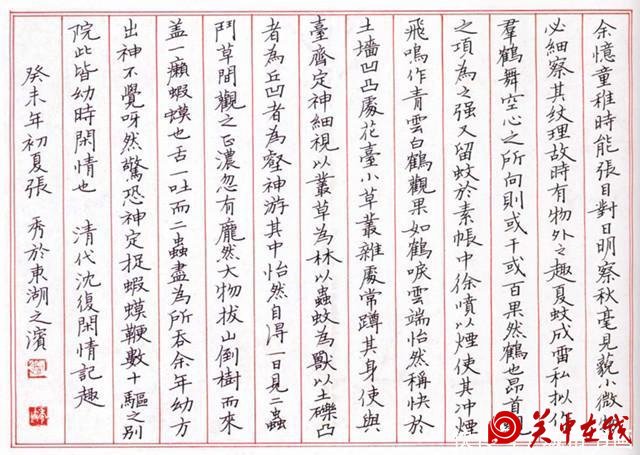 余憶童稚時能張目對日明察秋毫見藐小微
必細察其紋理故時有物外之趣夏蚊成雷私擬作
羣鶴舞空心之所向則或千或百果然鶴也昂首
之項為之强又留蚊於素帳中徐噴以煙使其冲煙
飛鳴作青雲白鶴觀果如鶴唳雲端怡然稱快於
土墻凹凸處花臺小草叢雜處常蹲其身使與
臺齊定神細視以叢草為林以蟲蚊為獸以土礫凸
者為丘凹者為壑神游其中怡然自得一日見二蟲
鬥草間觀之正濃忽有龐然大物拔山倒樹而來
蓋一癩蝦蟆也舌一吐而二蟲盡為所吞余年幼方
出神不覺呀然驚恐神定捉蝦蟆鞭數十驅之別
院此皆幼時閑情也 清代沈復閑情記趣
癸未年初夏張 秀於東湖之濱
关中在线